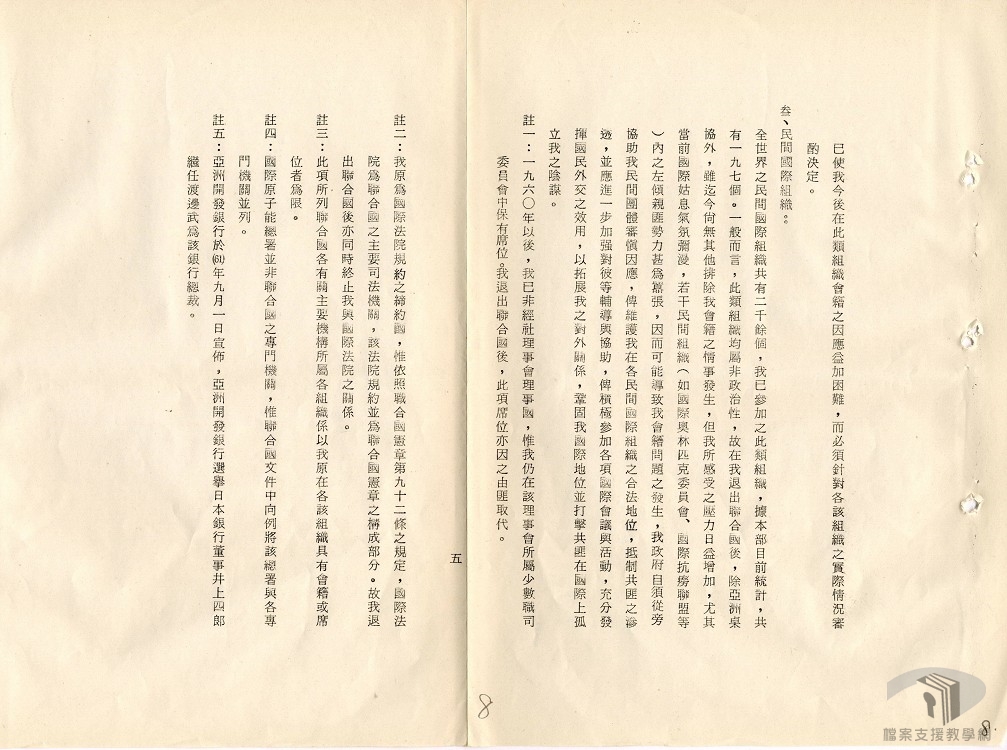 已使我今後在此類組織會籍之因應益加困難，而必須針對各該組織之實際情況審
酌決定。
叁、民間國際組織。
全世界之民間國際組織共有二千餘個，我已參加之此類組織，據本部目前統計，共
有一九七個。一般而言，此類組織均屬非政治性，故在我退出聯合國後，除亞洲桌
協外，雖迄今尙無其他排除我會籍之情事發生，但我所感受之壓力日益增加，尤其
當前國際姑息氣氛彌漫，若干民間組織（如國際奧林匹克委員會、國際抗癆聯盟等
）內之左傾親匪勢力甚爲囂張，因而可能導致我會籍問題之發生，我政府自須從旁
協助我民間團體審愼因應，俾維護我在各民間國際組織之合法地位，抵制共匪之滲
透，並應進一步加强對彼等輔導與協助，俾積極參加各項國際會議與活動，充分發
揮國民外交之效用，以拓展我之對外關係，鞏固我國際地位並打擊共匪在國際上孤
立我之陰謀。
註一：一九六〇年以後，我已非經社理事會理事國，惟我仍在該理事會所屬少數職司
委員會中保有席位。我退出聯合國後，此項席位亦因之由匪取代。
五
註二：我原爲國際法院規約之締約國，惟依照聯合國憲章第九十二條之規定，國際法
院爲聯合國之主要司法機關，該法院規約並爲聯合國憲章之構成部分。故我退
出聯合國後亦同時終止我與國際法院之關係。
註三：此項所列聯合國各有關主要機構所屬各組織係以我原在各該組織具有會籍或席
位者爲限。
註四：國際原子能總署並非聯合國之專門機關，惟聯合國文件中向例將該總署與各專
門機關並列。
註五：亞洲開發銀行於(61)年九月一日宣佈，亞洲開發銀行選舉日本銀行董事井上四郎
繼任渡邊武爲該銀行總裁。
8
8.
檔案支援教學網